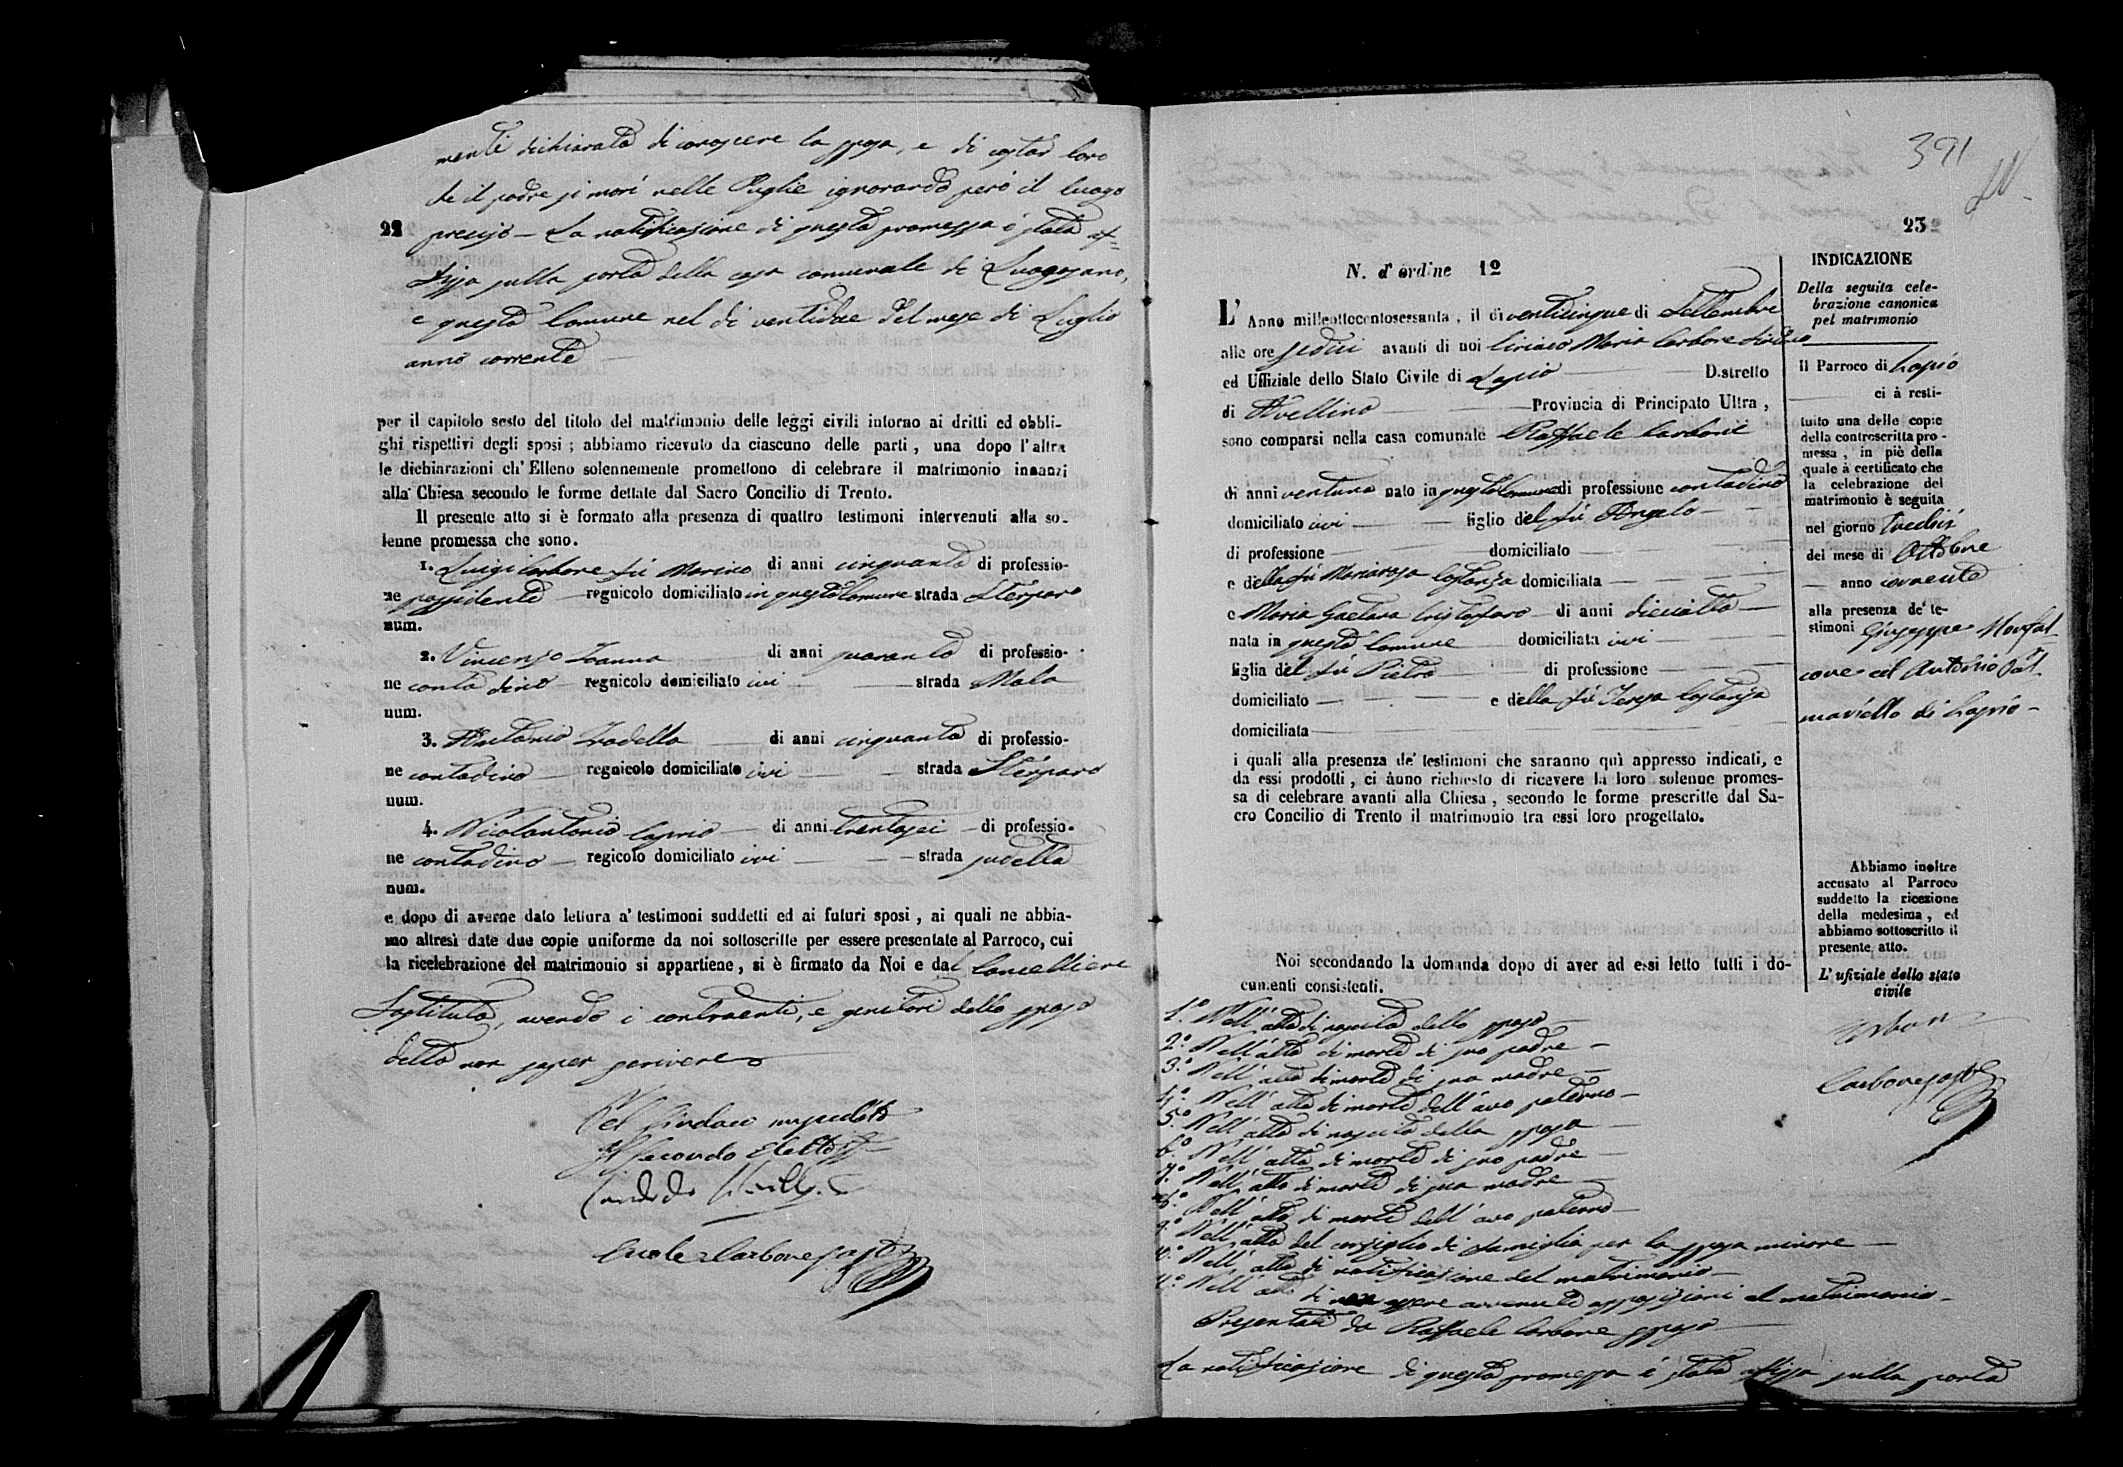 mente dichiarato di conoscere la sposa, e di costar loro
che il padre si morì nelle Puglie ignorando però il luogo
22
preciso — La notificazione di questa promessa è stata af=
fissa sulla porta della casa comunale di Luogosano,
e questo Comune nel dì ventidue del mese di Luglio
anno corrente
per il capitolo sesto del titolo del matrimonio delle leggi civili intorno ai dritti ed obbli-
ghi rispettivi degli sposi ; abbiamo ricevuto da ciascuno delle parti , una dopo l'altra
le dichiarazioni ch' Elleno solennemente promettono di celebrare il matrimonio innanzi
alla Chiesa secondo le forme dettate dal Sacro Concilio di Trento.
Il presente atto si è formato alla presenza di quattro testimoni intervenuti alla so-
lenne promessa che sono.
1. Luigi Carbone fù Marino di anni cinquanta di professio-
ne possidente regnicolo domiciliato in questo Comune strada Sterparo
num.
2. Vincenzo Ioanna di anni quaranta di professio-
ne contadino regnicolo domiciliato ivi strada Mala
num.
3. Antonio di anni cinquanta di professio-
ne contadino regnicolo domiciliato ivi strada Sterparo
num.
4. Nicolantonio Caprio di anni trentasei di professio-
ne contadino regicolo domiciliato ivi strada sudetta
num.
e dopo di averne dato lettura a' testimoni suddetti ed ai futuri sposi , ai quali ne abbia-
mo altresì date due copie uniforme da noi sottoscritte per essere presentate al Parroco, cui
la ricelebrazione del matrimonio si appartiene , si è firmato da Noi e dal Cancelliere
Sostituto, avendo i contraenti, e genitori dello sposo
detto non saper scrivere
Pel Sindaco impedito
Il Secondo Eletto
Carbone sost
391
23
N. d' ordine 12
L' Anno milleottocentosessanta , il dì venticinque di Settembre
alle ore sedici avanti di noi Ciriaco Maria Carbone Sindaco
ed Uffiziale dello Stato Civile di Lapio D.stretto
di Avellino Provincia di Principato Ultra ,
sono comparsi nella casa comunale Raffaele Carbone
di anni ventuno nato in questo Comune di professione contadino
domiciliato ivi figlio del fù Angelo
di professione domiciliato
e della fù Mariarosa Costanza domiciliata
e Maria Gaetana Cristofaro di anni dieciotto
nata in questo Comune domiciliata ivi
figlia del fù Pietro di professione
domiciliato e della fù Teresa Costanza
domiciliata
i quali alla presenza de' testimoni che saranno quì appresso indicati, e
da essi prodotti , ci ànno richiesto di ricevere la loro solenne promes-
sa di celebrare avanti alla Chiesa , secondo le forme prescritte dal Sa-
cro Concilio di Trento il matrimonio tra essi loro progettato.
Noi secondando la domanda dopo di aver ad essi letto tutti i do-
cumenti consistenti.
1.º Nell' atto di nascita dello sposo —
2.º Nell' atto di morte di suo padre —
3.º Nell' atto di morte di sua madre —
4.º Nell' atto di morte dell' avo paterno —
5.º Nell' atto di nascita della sposa
6.º Nell' atto di morte di suo padre —
7.º Nell' atto di morte di sua madre —
8.º Nell' atto di morte dell' avo paterno —
9.º Nell' atto del consiglio di famiglia per la sposa minore —
10.º Nell' atto di notificazione del matrimonio —
11.º Nell' atto di non essere avvenute opposizioni al matrimonio —
Presentati da Raffaele Carbone sposo
La notificazione di questa promessa è stata affissa sulla porta
INDICAZIONE
Della seguita cele-
brazione canonica
pel matrimonio
Il Parroco di Lapio
ci à resti-
tuito una delle copie
della controscritta pro-
messa , in piè della
quale à certificato che
la celebrazione del
matrimonio è seguita
nel giorno tredici
del mese di Ottobre
anno corrente
alla presenza de' te-
stimoni Giuseppe Monfal-
cone ed Antonio Sal-
mariello di Lapio —
Abbiamo inoltre
accusato al Parroco
suddetto la ricezione
della medesima , ed
abbiamo sottoscritto il
presente atto.
L' ufiziale dello stato
civile
Carbone
Carbone sost